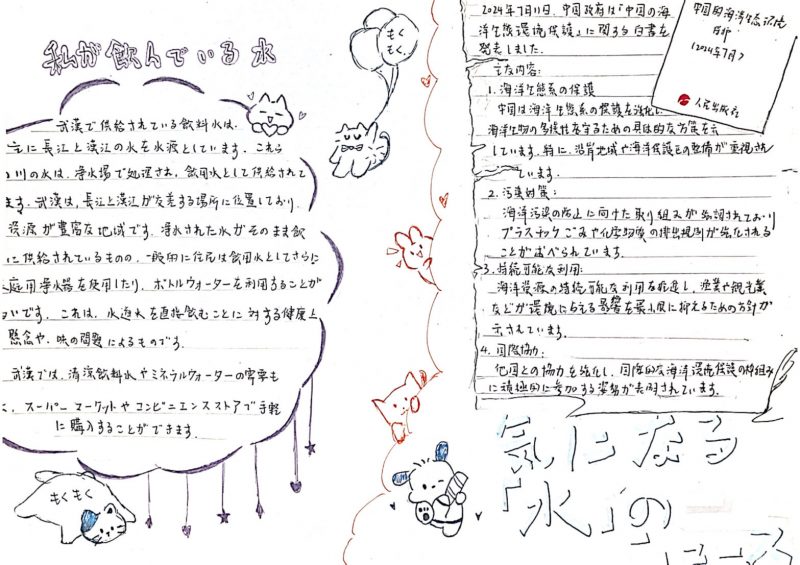 私が飲んでいる水
もくもく
武漢で供給されている飲料水は、
主に長江と漢江の水を水源としています。これら
川の水は、浄水場で処理され、飲用水として供給されて
ます。武漢は、長江と漢江が交差する場所に位置しており、
資源が豊富な地域です。浄水された水がそのまま飲
に供給されているものの、一般的に住民は飲用水としてさらに
庭用浄水器を使用したり、ボトルウォーターを利用することが
いです。これは、水道水を直接飲むことに対する健康上
懸念や、味の問題によるものです。
武漢では、清涼飲料水やミネラルウォーターの営業も
に、スーパーマーケットやコンビニエンスストアで手軽
に購入することができます。
もくもく
2024年7月11日、中国政府は「中国の海
洋生態環境保護」に関する白書を
発表しました。
主な内容:
1. 海洋生態系の保護
中国は海洋生態系の保護を強化し
海洋生物の多様性を守るための具体的な方策を
しています。特に、沿岸地域や海洋保護区の整備が重視され
ています。
2. 汚染対策:
海洋汚染の防止に向けた取り組みが強調されており
プラスチックごみや化学物質の排出規制が強化される
ことが述べられています。
3. 持続可能な利用:
海洋資源の持続可能な利用を推進し、漁業や観光業
などが環境に与える影響を最小限に抑えるための方針が
示されています。
4. 国際協力:
他国との協力を強化し、国際的な海洋環境保護の枠組み
に積極的に参加する姿勢が表明されています。
中国的海洋生态环境
保护
(2024年7月)
人民出版社
気になる
「水」の
ニュース